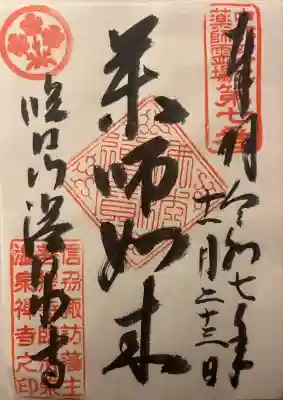 奉拝 令和七年
十一月二十三日
薬師霊場第七番
薬師如来
臨江山温泉寺
信州諏訪藩主
温泉禅寺之印